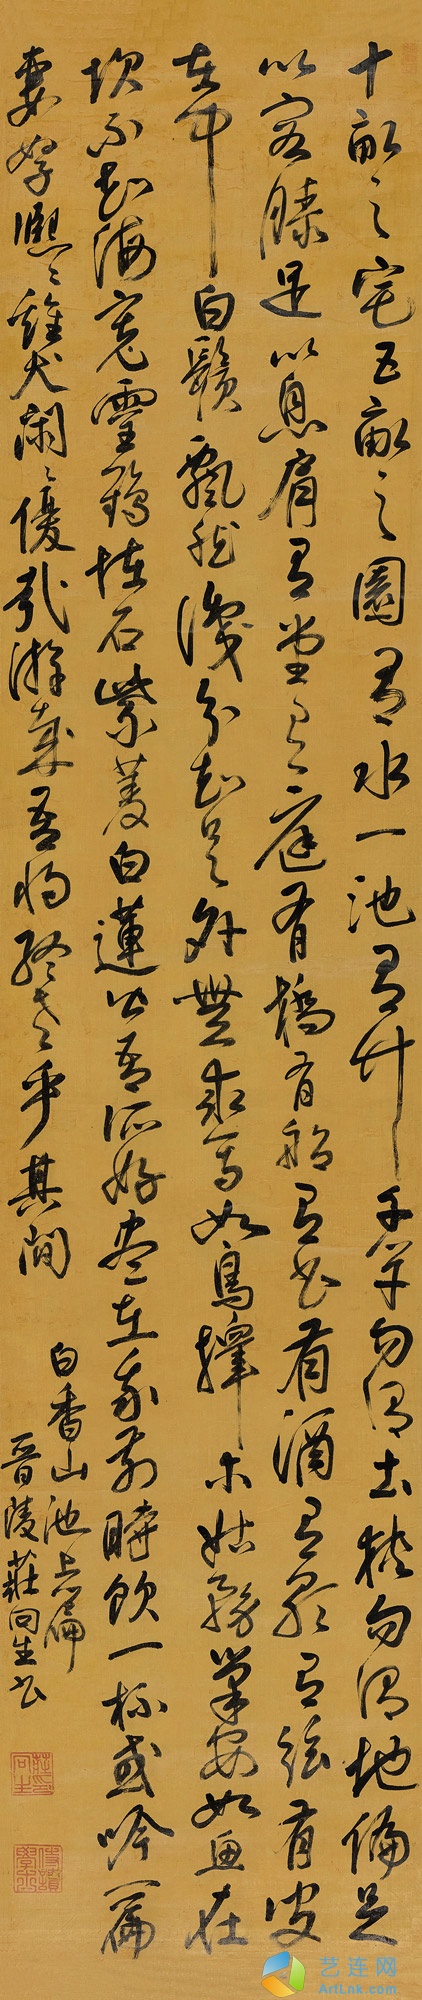 十畝之宅五畝之園有水一池有竹千竿勿謂土狹勿謂地偏足
以容膝足以息肩有堂有庭有橋有船有書有酒有歌有絃有叟
在中白鬚飄然識分知足外無求焉如鳥擇木姑務巢安如龜在
坎不知海寬靈鶴怪石紫菱白蓮皆吾所好盡在我前時飲一杯或吟一篇
妻孥熙〻雞犬閑〻優哉游哉吾將終老乎其間
白香山池上篇
晉陵莊冋生書
莊印冋生
侍讀學士
艺连网
ArtLnk.com